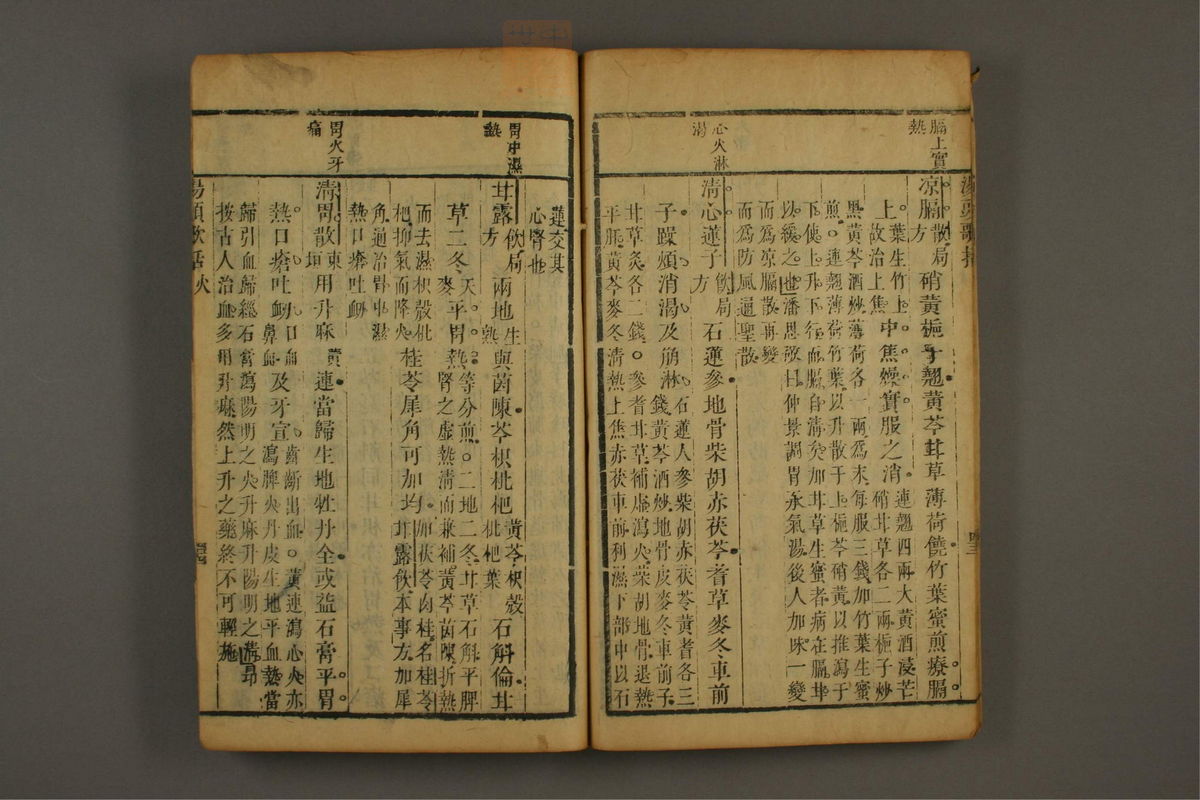 膈上實
熱
涼膈散局 硝黃梔子翹黃芩甘草薄荷饒竹葉蜜煎療膈
方
上。葉生竹上。故治上焦 中焦燥實服之消 連翹四兩大黃酒浸芒硝甘草各二兩梔子炒
黑黃芩酒炒薄荷各一兩爲末每服三錢加竹葉生蜜
煎。連翹薄荷竹葉以升散于上梔芩硝黃以推瀉于
下使上升下行而膈自清矣加甘草生蜜者病在膈甘
以緩之也潘思敬曰仲景調胃承氣湯後人加味一變
而爲涼膈散再變
而爲防風通聖散
心火淋
渴
清心蓮子飲局 石蓮參地骨柴胡赤茯苓耆草麥冬車前
方
子。躁煩消渴及崩淋 石蓮人參柴胡赤茯苓黃耆各三錢黃芩酒炒地骨皮麥冬車前子
甘草炙各二錢。參耆甘草補虛瀉火柴胡地骨退熱
平肝黃芩麥冬清熱上焦赤茯車前利濕下部中以石
蓮交其
心腎也
胃中濕
熱
甘露飲局 兩地生熟與茵陳芩枳枇杷 黃芩枳殼枇杷葉 石斛倫甘
方
草二冬天麥平胃熱 等分煎。二地二冬甘草石斛平脾腎之虛熱清而兼補黃芩茵陳折熱
而去濕枳殼枇杷抑氣而降火 桂苓犀角可加均 加茯苓肉桂名桂苓甘露飲本事方加犀
角通治胃中濕
熱口瘡吐衄
胃火牙
痛
清胃散東垣用升麻黃連當歸生地牡丹全或益石膏平胃
熱口瘡吐衄口血鼻血及牙宣 齒齗出血。黃連瀉心火亦瀉脾火丹皮生地平血熱當
歸引血歸經石膏瀉陽明之火升麻升陽明之清昂
按古人治血多用升麻然上升之藥終不可輕施